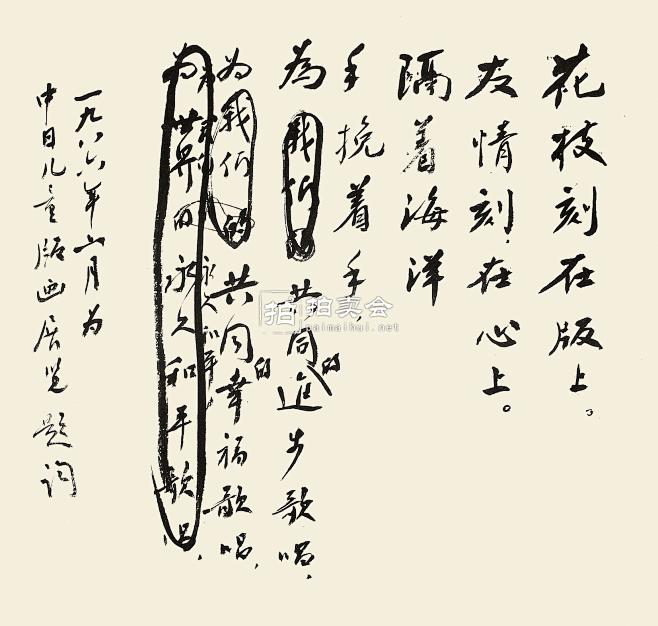 花枝刻在版上。
友情刻在心上。
隔着海洋
手挽着手，
為我们的共同的進步歌唱，
为我们的共同的幸福歌唱，
为世界的永久和平歌唱，
一九八六年六月为
中日儿童版画展览题词
拍拍卖会
paimaihui.net